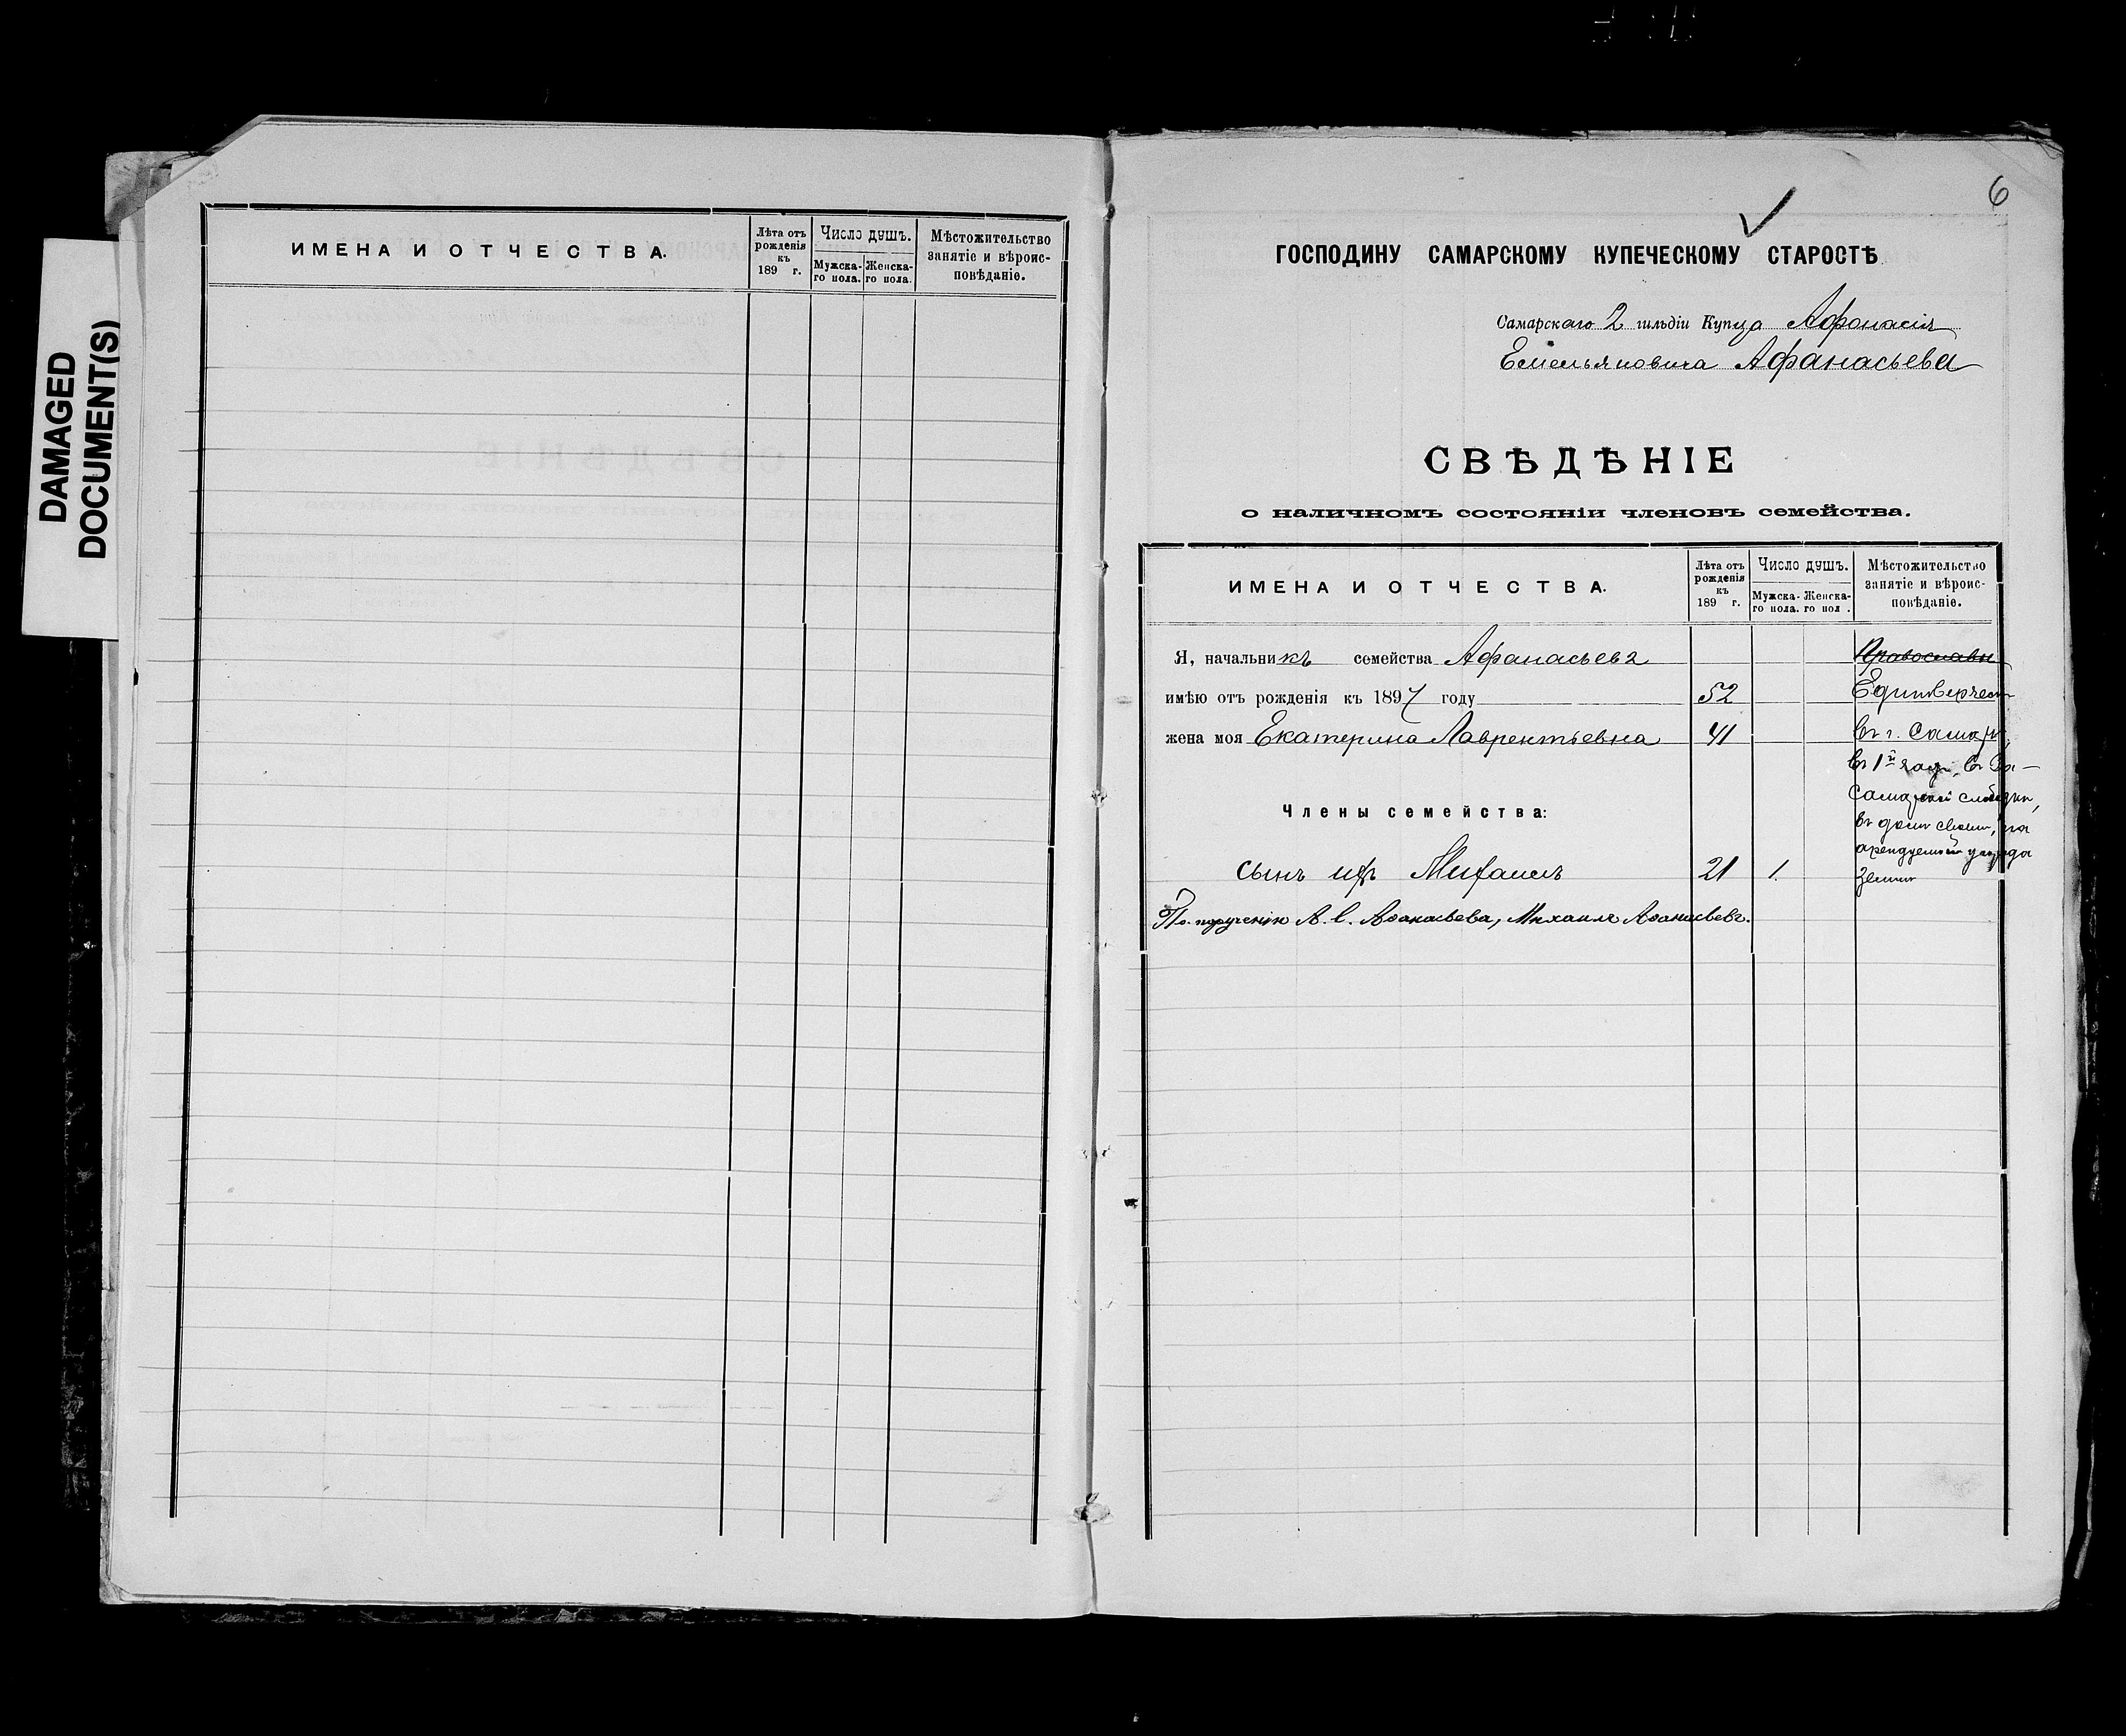 DAMAGED
DOCUMENT(S)
ИМЕНА И ОТЧЕСТВА.
Лѣта отъ
рожденія
къ
189 г.
Число душъ.
Мужска-
го пола.
Женска-
го пола.
Мѣстожительство
занятіе и вѣроис-
повѣданіе.
6
ГОСПОДИНУ САМАРСКОМУ КУПЕЧЕСКОМУ СТАРОСТѢ
Самарскаго 2 гильдіи Купца Афонасія
Емельяновича Афанасьева
СВѢДѢНІЕ
о наличномъ состояніи членовъ семейства.
ИМЕНА И ОТЧЕСТВА.
Лѣта отъ
рожденія
къ
189 г.
Число душъ.
Мужска-
го пола.
Женска-
го пол .
Мѣстожительство
занятіе и вѣроис-
повѣданіе.
Я, начальникъ семейства Афанасьевъ Православн
имѣю отъ рожденія къ 1897 году 52 Единоверчес
жена моя Екатерина Лаврентьевна 41 въ г. Самарѣ,
въ 1й част. въ За-
Члены семейства:
самарской слободкѣ,
въ домѣ своемъ, на
арендуемой у города
землѣ
сынъ ихъ Михаилъ 21 1.
По порученію А. Е. Аѳанасьева, Михаилъ Аѳанасьевъ.